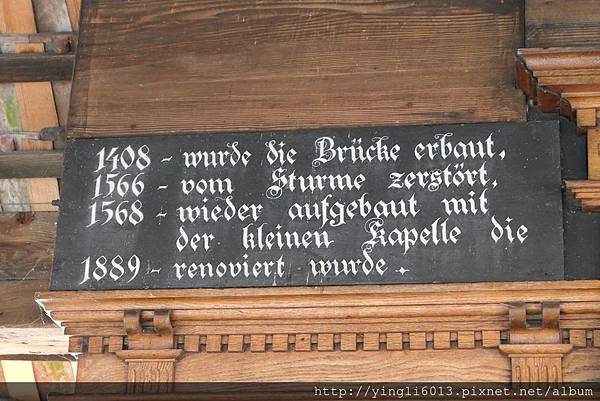 1408 - wurde die Brücke erbaut,
1566 - vom Sturme zerstört,
1568 - wieder aufgebaut mit
der kleinen Kapelle die
1889 - renoviert wurde.
http://yingli6013.pixnet.net/album